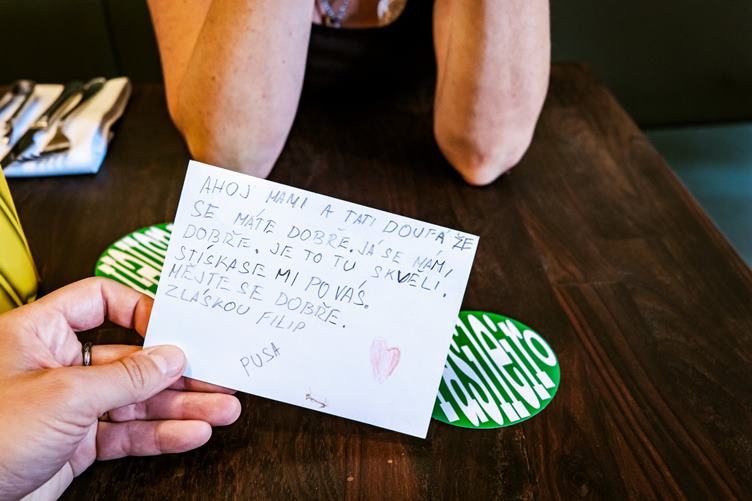 AHOJ MAMI A TATI DOUFÁ ŽE
SE MÁTE DOBŘE. JÁ SE MÁM,
DOBŘE. JE TO TU SKVĚLI.
STISKASE MI PO VÁS.
MĚJTE SE DOBŘE.
Z LÁSKOU FILIP
PUSA